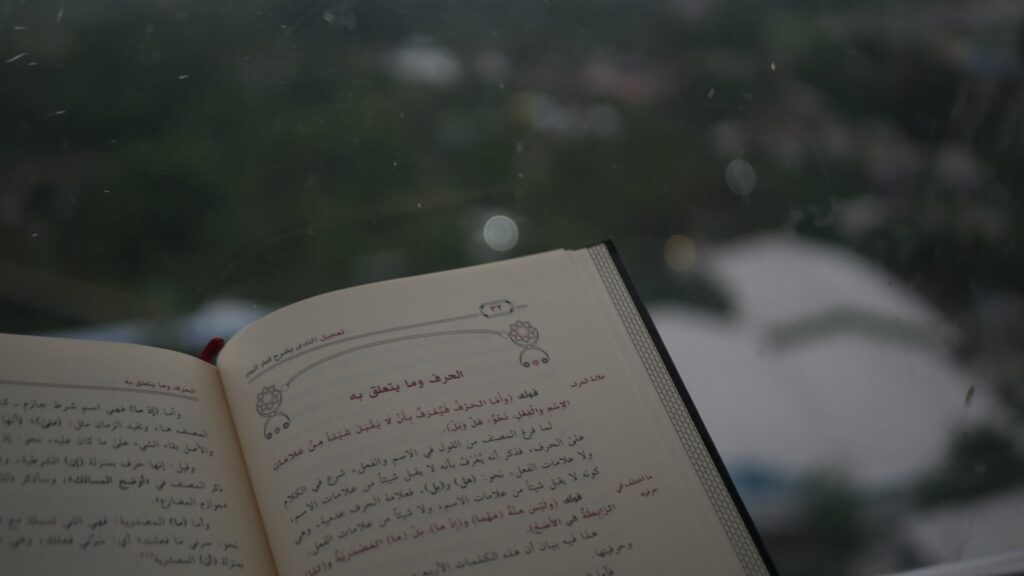 ٣٢
تعجيل الندى بشرح قطر الندى
الحرف وما يتعلق به
علامة الحرف
قوله: (وَأَمَّا الحَرْفُ فَيُعْرَفُ بِأَنْ لَا يَقْبَلَ شَيْئاً مِنْ عَلَامَاتِ
الِاسْمِ وَالْفِعْلِ، نَحْوُ: هَلْ وَبَلْ).
لما فرغ المصنف من القول في الاسم والفعل، شرع في الكلام
على الحرف، فذكر أنه يُعْرَفُ بأنه لا يقبل شيئاً من علامات الاسم،
ولا علامات الفعل، نحو: (هل) و(بل)، فعلامة الحرف عدمية، وهي
كونه لا يقبل شيئاً من علامات الاسم، ولا شيئاً من علامات الفعل.
ما اختلف في
حرفيته
قوله: (وَلَيْسَ مِنْهُ (مَهْمَا) وَ(إِذْ مَا)، بَلْ (مَا) المَصْدَرِيَّةُ وَ(لَمَّا)
الرَّابِطَةُ فِي الأَصَحِّ).
هذا فيه بيان أن هذه الكلمات الأربع
وحرفيتها.
الحرف وما يتعلق به
وأما (إذ ما) فهي اسم شرط جازم
المصنف هنا، وتفيد الزمان مثل: (متى)؛ لأنها
والأصل بقاء الشيء على ما كان عليه، نحو: إذ
وقيل: إنها حرف بمنزلة (إن) الشرطية،
ذكر المصنف في «أوضح المسالك»، وسأذكر ذلك
جوازم المضارع
وأما (ما) المصدرية: فهي التي تسبك مع
نحو: سرني ما فعلت؛ أي: سَرَّني فعلك، وهي
بمنزلة (أن) المصدرية